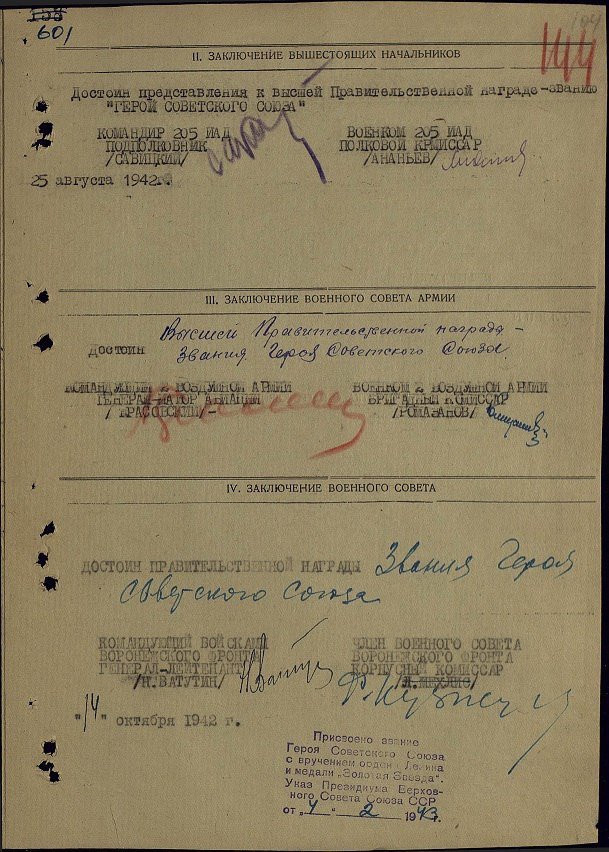 601
144
II. ЗАКЛЮЧЕНИЕ ВЫШЕСТОЯЩИХ НАЧАЛЬНИКОВ
Достоин представления к высшей Правительственной награде-званию
"ГЕРОЙ СОВЕТСКОГО СОЮЗА"
КОМАНДИР 205 ИАД ВОЕНКОМ 205 ИАД
ПОДПОЛКОВНИК ПОЛКОВОЙ КОМИССАР
/САВИЦКИЙ/ /АНАНЬЕВ/
25 августа 1942г.
III. ЗАКЛЮЧЕНИЕ ВОЕННОГО СОВЕТА АРМИИ
Высшей Правительственной награды -
Достоин Звания Героя Советского Союза
КОМАНДУЮЩИЙ 2 ВОЗДУШНОЙ АРМИИ ВОЕНКОМ 2 ВОЗДУШНОЙ АРМИИ
ГЕНЕРАЛ-МАЙОР АВИАЦИИ БРИГАДНЫЙ КОМИССАР
/КРАСОВСКИЙ/- /РОМАЗАНОВ/
IV. ЗАКЛЮЧЕНИЕ ВОЕННОГО СОВЕТА
ДОСТОИН ПРАВИТЕЛЬСТВЕННОЙ НАГРАДЫ Звания Героя
Советского Союза
КОМАНДУЮЩИЙ ВОЙСКАМИ ЧЛЕН ВОЕННОГО СОВЕТА
ВОРОНЕЖСКОГО ФРОНТА ВОРОНЕЖСКОГО ФРОНТА
ГЕНЕРАЛ-ЛЕЙТЕНАНТ КОРПУСНЫЙ КОМИССАР
/Н.ВАТУТИН/ /Л.МЕХЛИС/
"14" октября 1942 г.
Присвоено звание
Героя Советского Союза
с вручением орден Ленина
и медали „Золотая Звезда".
Указ Президиума Верхов-
ного Совета Союза ССР
от „4" 2 1943г.